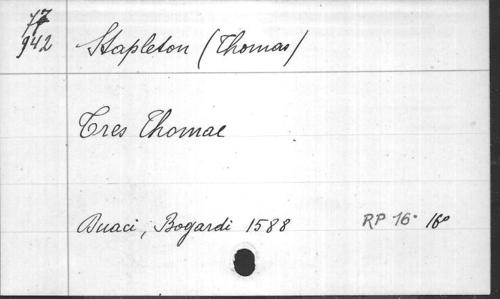 77
942
Stapleton (Thomas)
Tres Thomae
Duaci, Bogardi 1588 RP 16° 16°